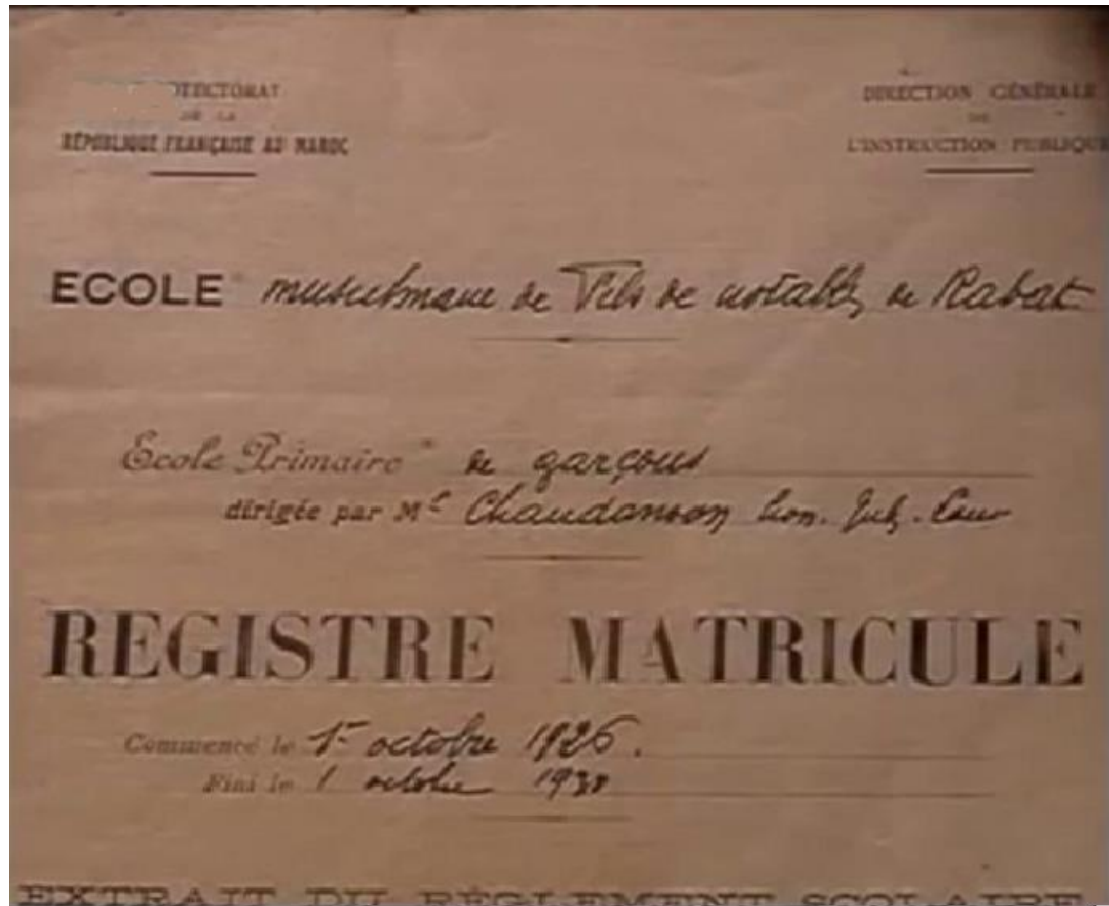 OTECTORAT
DE LA
RÉPUBLIQUE FRANÇAISE AU MAROC
DIRECTION GÉNÉRALE
DE
L'INSTRUCTION PUBLIQUE
ECOLE musulmane de Fils de notables de Rabat
Ecole Primaire de garçons
dirigée par Mr Chaudanson
REGISTRE MATRICULE
Commencé le 1er octobre 1926.
Fini le 1 octobre 1938
EXTRAIT DU RÈGLEMENT SCOLAIRE